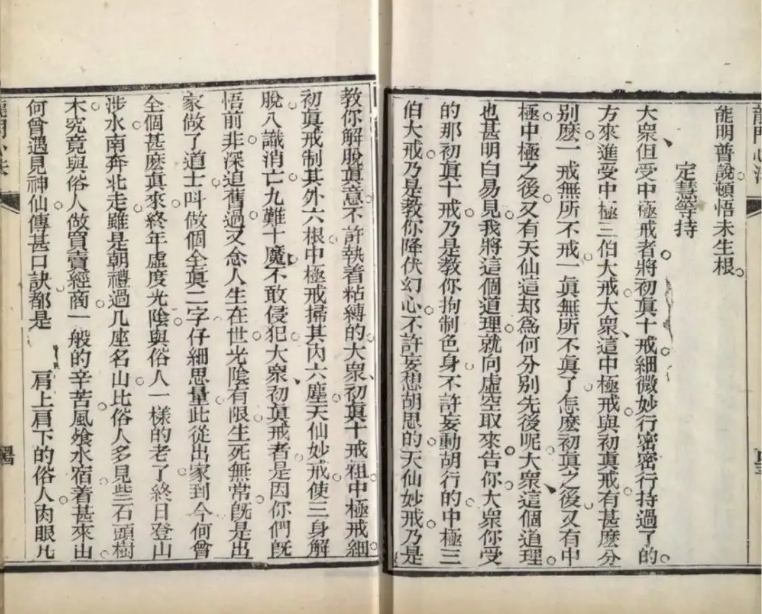 能明普說頓悟未生根
定慧等持
大衆但受中極戒者將初眞十戒細微妙行密密行持過了的
方來進受中極三伯大戒大衆這中極戒與初眞戒有甚麽分
别麽一戒無所不戒一眞無所不眞了怎麽初眞之後又有中
極中極之後又有天仙這却爲何分别先後呢大衆這個道理
也甚明白易見我將這個道理就向虛空取來告你大衆你受
的那初眞十戒乃是教你拘制色身不許妄動胡行的中極三
伯大戒乃是教你降伏幻心不許妄想胡思的天仙妙戒乃是
教你解脫眞意不許執着粘縛的大衆初眞十戒粗中極戒細
初眞戒制其外六根中極戒掃其内六塵天仙妙戒使三身解
脫八識消亡九難十魔不敢侵犯大衆初眞戒者是因你們旣
悟前非深追舊過又念人生在世光陰有限生死無常旣是出
家做了道士呌做個全眞二字仔細思量此從出家到今何曾
全個甚麽眞來終年虛度光陰與俗人一樣的老了終日登山
涉水南奔北走雖是朝禮過几座名山比俗人多見些石頭樹
木究竟與俗人做買賣經商一般的辛苦風飡水宿着甚來由
何曾遇見神仙傳甚口訣都是 肩上肩下的俗人肉眼凡